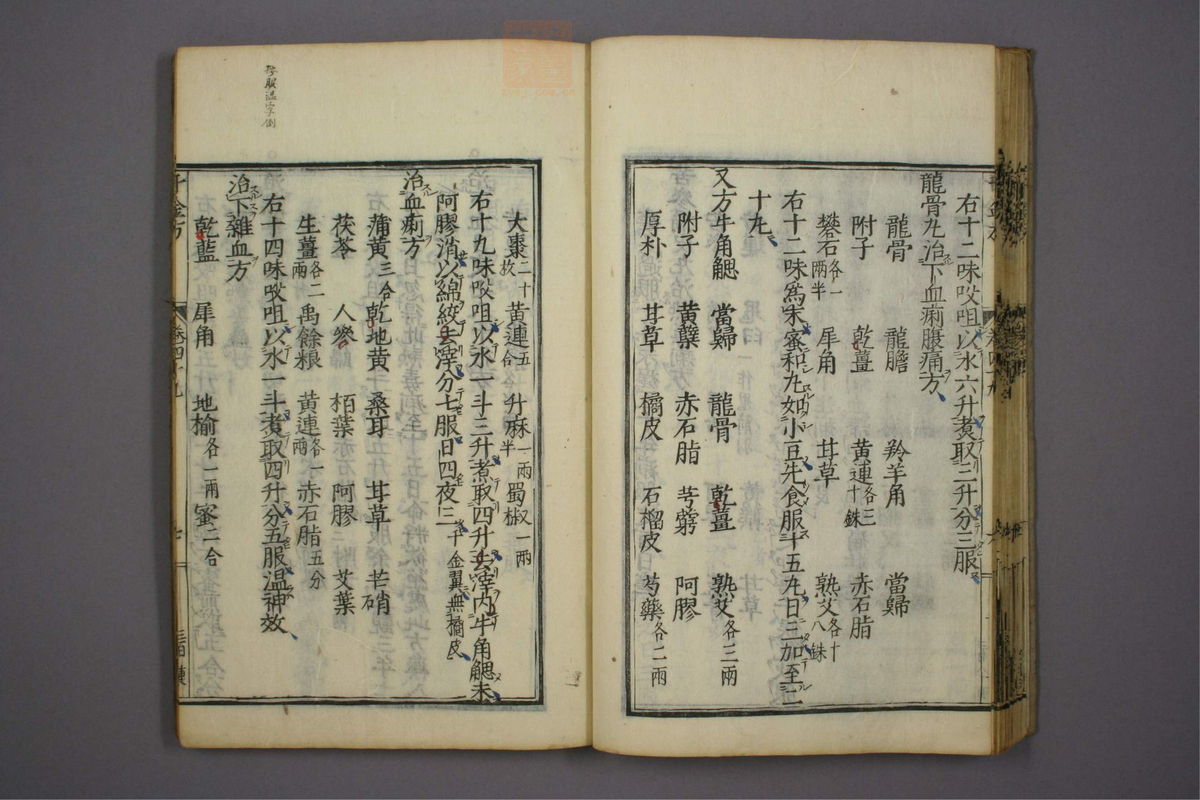 右十二味㕮咀以水六升煮取三升分三服
龍骨丸治下血痢腹痛方
龍骨 龍膽 羚羊角 當歸
附子 乾薑 黄連各三十銖 赤石脂
礬石各一兩半 犀角 甘草 熟艾各十八銖
右十二味爲末蜜和丸如小豆先食服十五丸日三加至二
十丸
又方牛角䚡 當歸 龍骨 乾薑 熟艾各三兩
附子 黄蘗 赤石脂 芎藭 阿膠
厚朴 甘草 橘皮 石榴皮 芍藥各二兩
大棗二十枚 黄連五合 升麻一兩半 蜀椒一兩
右十九味㕮咀以水一斗三升煮取四升去滓内牛角䚡末
阿膠消以綿絞去滓分七服日四夜三千金翼無橘皮
治血痢方
蒲黄三合 乾地黄 桑耳 甘草 芒硝
茯苓 人參 柏葉 阿膠 艾葉
生薑各二兩 禹餘粮 黄連各一兩 赤石脂五分
右十四味㕮咀以水一斗煮取四升分五服温神效
治下雜血方
乾藍 犀角 地榆各一兩 蜜二合
千金方
卷四十九
七